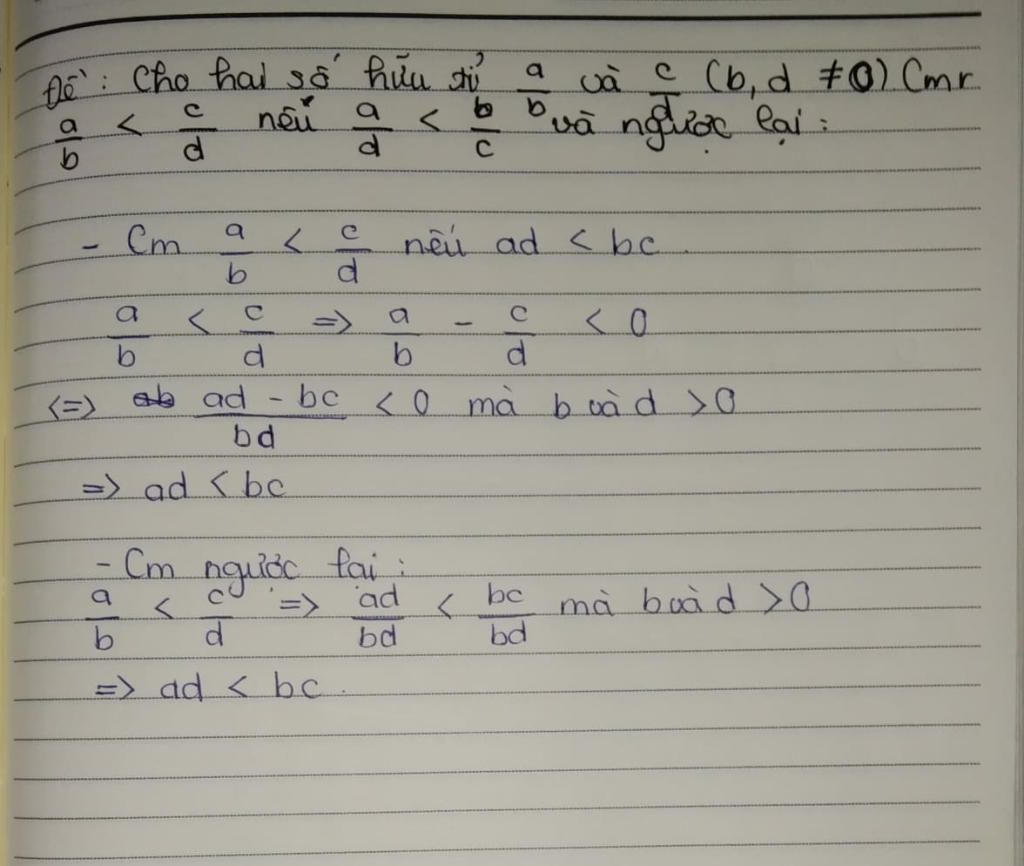 Đề: Cho hai số hữu tỉ a/b và c/d (b, d ≠ 0) Cmr
a/b < c/d nếu a/d < b/c và ngược lại:
- Cm a/b < c/d nếu ad < bc.
a/b < c/d => a/b - c/d < 0
<=> (ad - bc)/bd < 0 mà b và d > 0
=> ad < bc
- Cm ngược lại:
a/b < c/d => ad/bd < bc/bd mà b và d > 0
=> ad < bc.